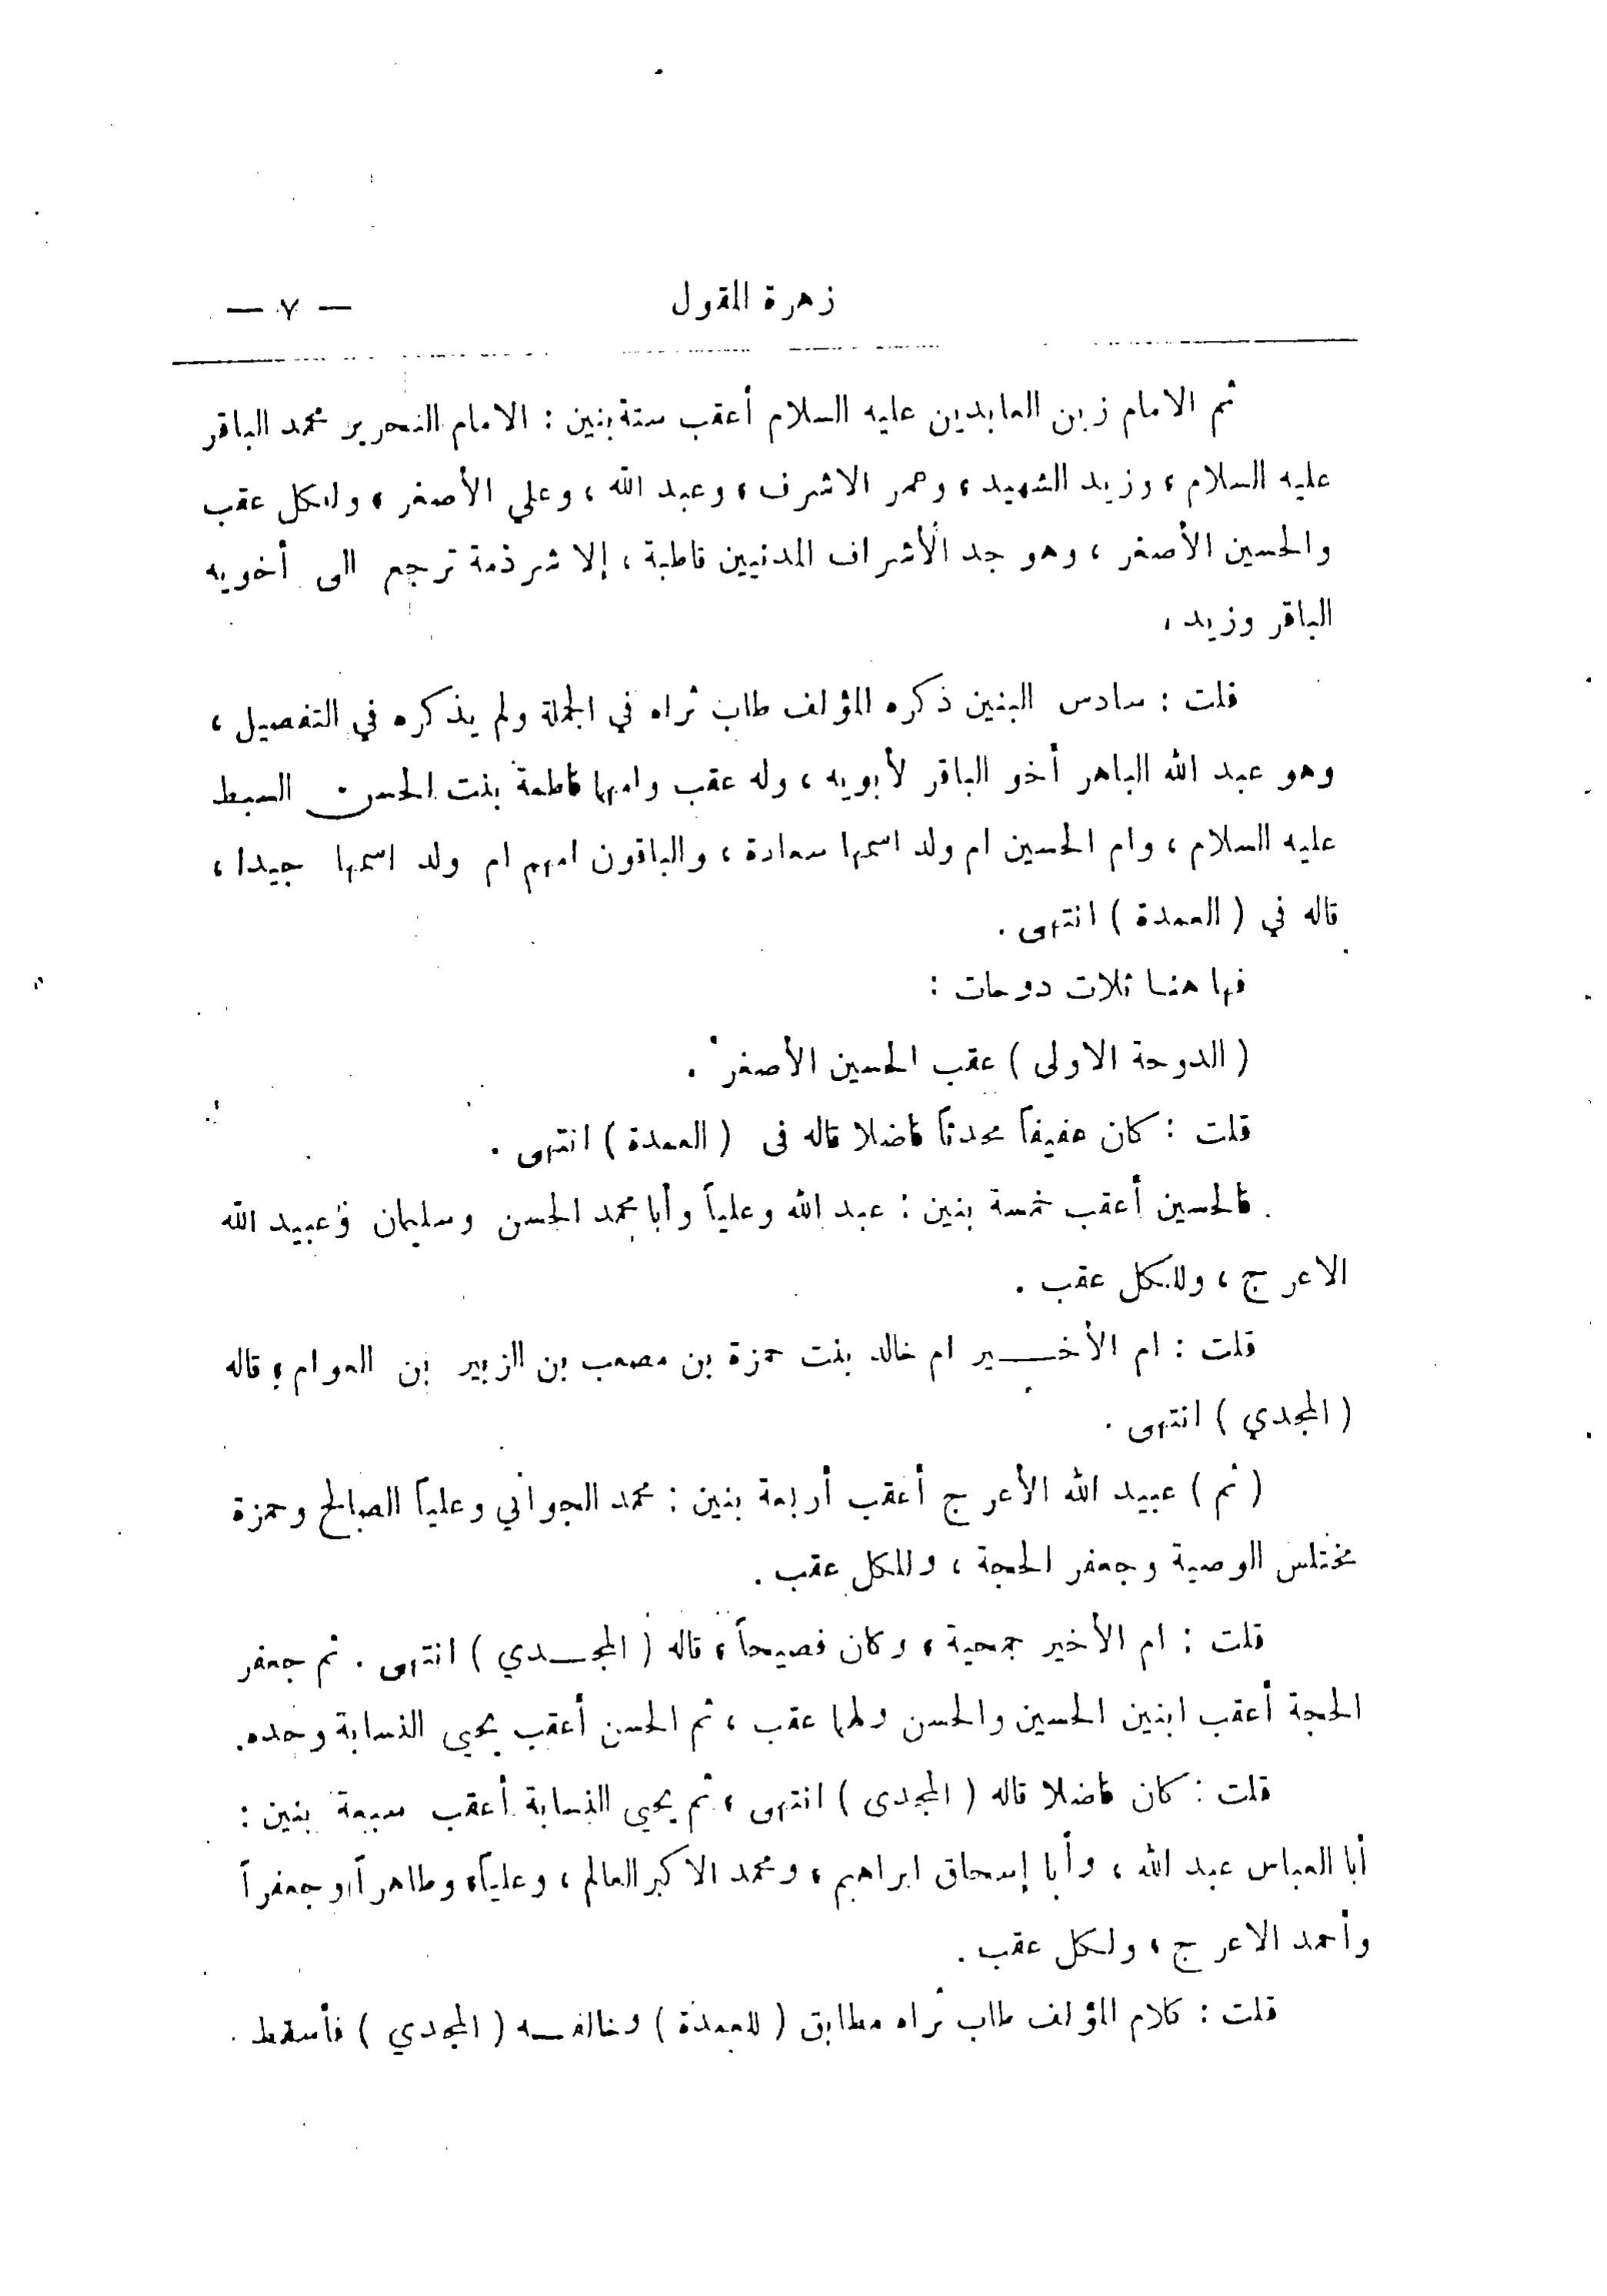 زهرة المقول
— ٧ —
ثم الامام زين العابدين عليه السلام أعقب ستة بنين : الامام النحرير محمد الباقر
عليه السلام ، وزيد الشهيد ، وعمر الاشرف ، وعبد الله ، وعلي الأصغر ، ولكل عقب
والحسين الأصغر ، وهو جد الأشراف المدنيين قاطبة ، إلا شرذمة ترجع الى أخويه
الباقر وزيد ،
قلت : سادس البنين ذكره المؤلف طاب ثراه في الجملة ولم يذكره في التفصيل ،
وهو عبد الله الباهر أخو الباقر لأبويه ، وله عقب وامهما فاطمة بنت الحسن السبط
عليه السلام ، وام الحسين ام ولد اسمها سعادة ، والباقون امهم ام ولد اسمها جيدا ،
قاله في ( العمدة ) انتهى .
فها هنا ثلاث دوحات :
( الدوحة الاولى ) عقب الحسين الأصغر .
قلت : كان عفيفاً محدثاً فاضلا قاله فى ( العمدة ) انتهى .
فالحسين أعقب خمسة بنين : عبد الله وعلياً وأبا محمد الحسن وسليمان وعبيد الله
الاعرج ، وللكل عقب .
قلت : ام الأخـــير ام خالد بنت حمزة بن مصعب بن الزبير بن العوام ؛ قاله
( المجدي ) انتهى .
( ثم ) عبيد الله الأعرج أعقب أربعة بنين : محمد الجواني وعلياً الصالح وحمزة
مختلس الوصية وجعفر الحجة ، وللكل عقب .
قلت : ام الأخير جمحية ، وكان فصيحاً ، قاله ( المجـــدي ) انتهى . ثم جعفر
الحجة أعقب ابنين الحسين والحسن ولهما عقب ، ثم الحسن أعقب يحيى النسابة وحده .
قلت : كان فاضلا قاله ( المجدى ) انتهى ، ثم يحيى النسابة أعقب سبعة بنين :
أبا العباس عبد الله ، وأبا إسحاق ابراهيم ، ومحمد الاكبر العالم ، وعلياً ، وطاهراً ، وجعفراً
وأحمد الاعرج ، ولكل عقب .
قلت : كلام المؤلف طاب ثراه مطابق ( للعمدة ) وخالفـــه ( المجدي ) فأسقط